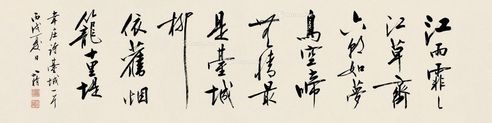 江雨霏〻
江草齊
六朝如夢
鳥空啼
無情最
是臺城
柳
依舊烟
籠十里堤
韋莊詩臺城一首
丙戌夏日